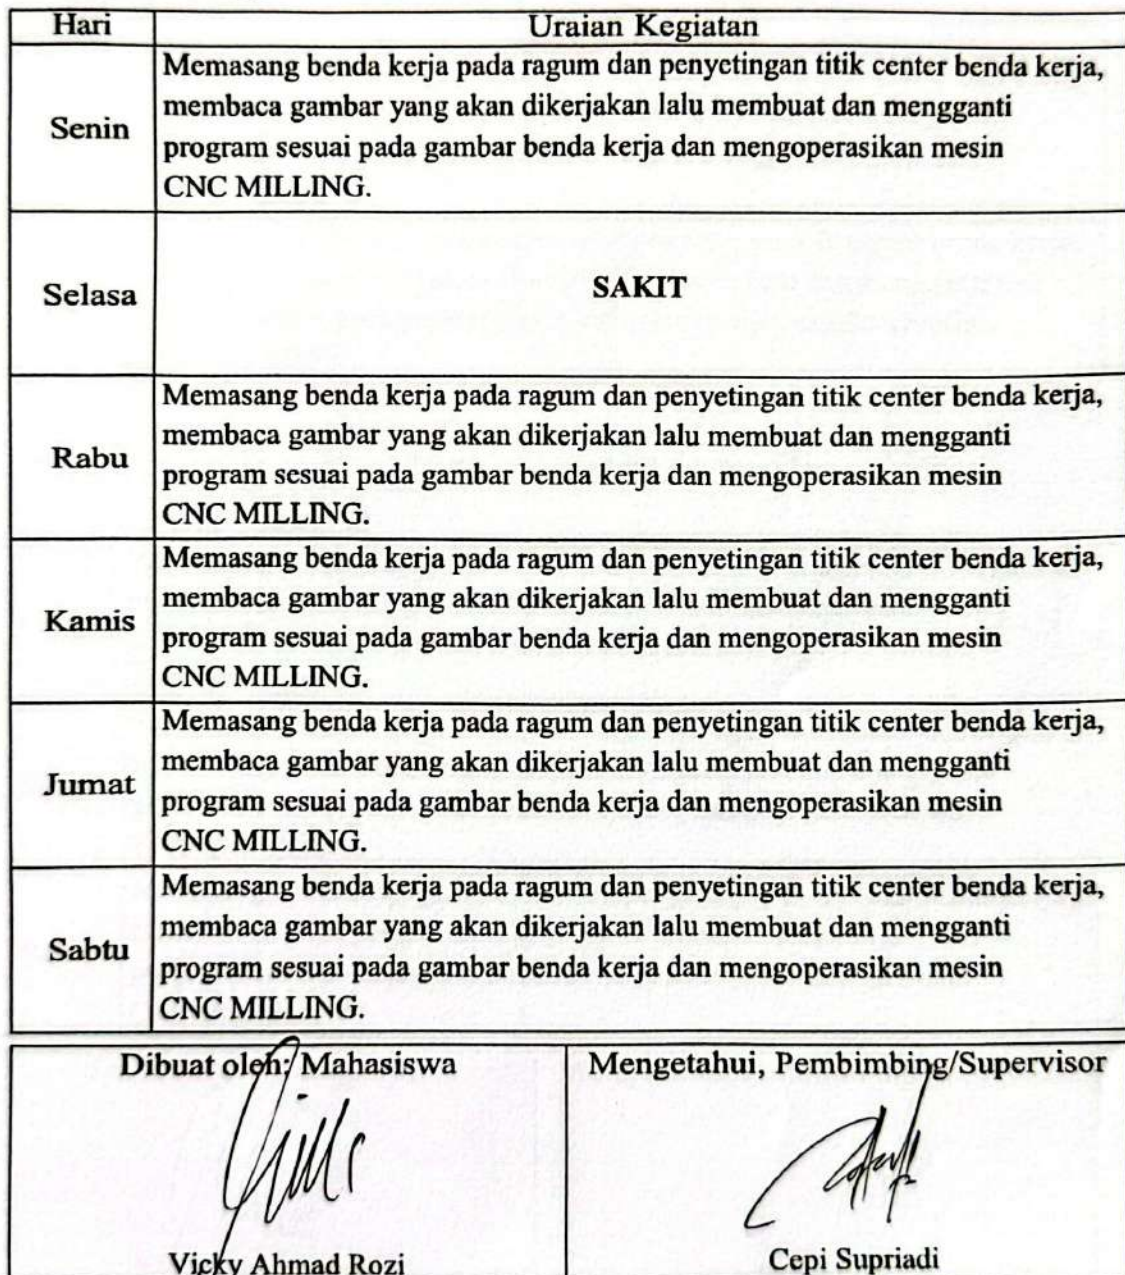 Hari Uraian Kegiatan
Memasang benda kerja pada ragum dan penyetingan titik center benda kerja,
membaca gambar yang akan dikerjakan lalu membuat dan mengganti
Senin
program sesuai pada gambar benda kerja dan mengoperasikan mesin
CNC MILLING.
Selasa SAKIT
Memasang benda kerja pada ragum dan penyetingan titik center benda kerja,
membaca gambar yang akan dikerjakan lalu membuat dan mengganti
Rabu
program sesuai pada gambar benda kerja dan mengoperasikan mesin
CNC MILLING.
Memasang benda kerja pada ragum dan penyetingan titik center benda kerja,
membaca gambar yang akan dikerjakan lalu membuat dan mengganti
Kamis
program sesuai pada gambar benda kerja dan mengoperasikan mesin
CNC MILLING.
Memasang benda kerja pada ragum dan penyetingan titik center benda kerja,
membaca gambar yang akan dikerjakan lalu membuat dan mengganti
Jumat
program sesuai pada gambar benda kerja dan mengoperasikan mesin
CNC MILLING.
Memasang benda kerja pada ragum dan penyetingan titik center benda kerja,
membaca gambar yang akan dikerjakan lalu membuat dan mengganti
Sabtu
program sesuai pada gambar benda kerja dan mengoperasikan mesin
CNC MILLING.
Dibuat oleh: Mahasiswa
Vicky Ahmad Rozi
Mengetahui, Pembimbing/Supervisor
Cepi Supriadi